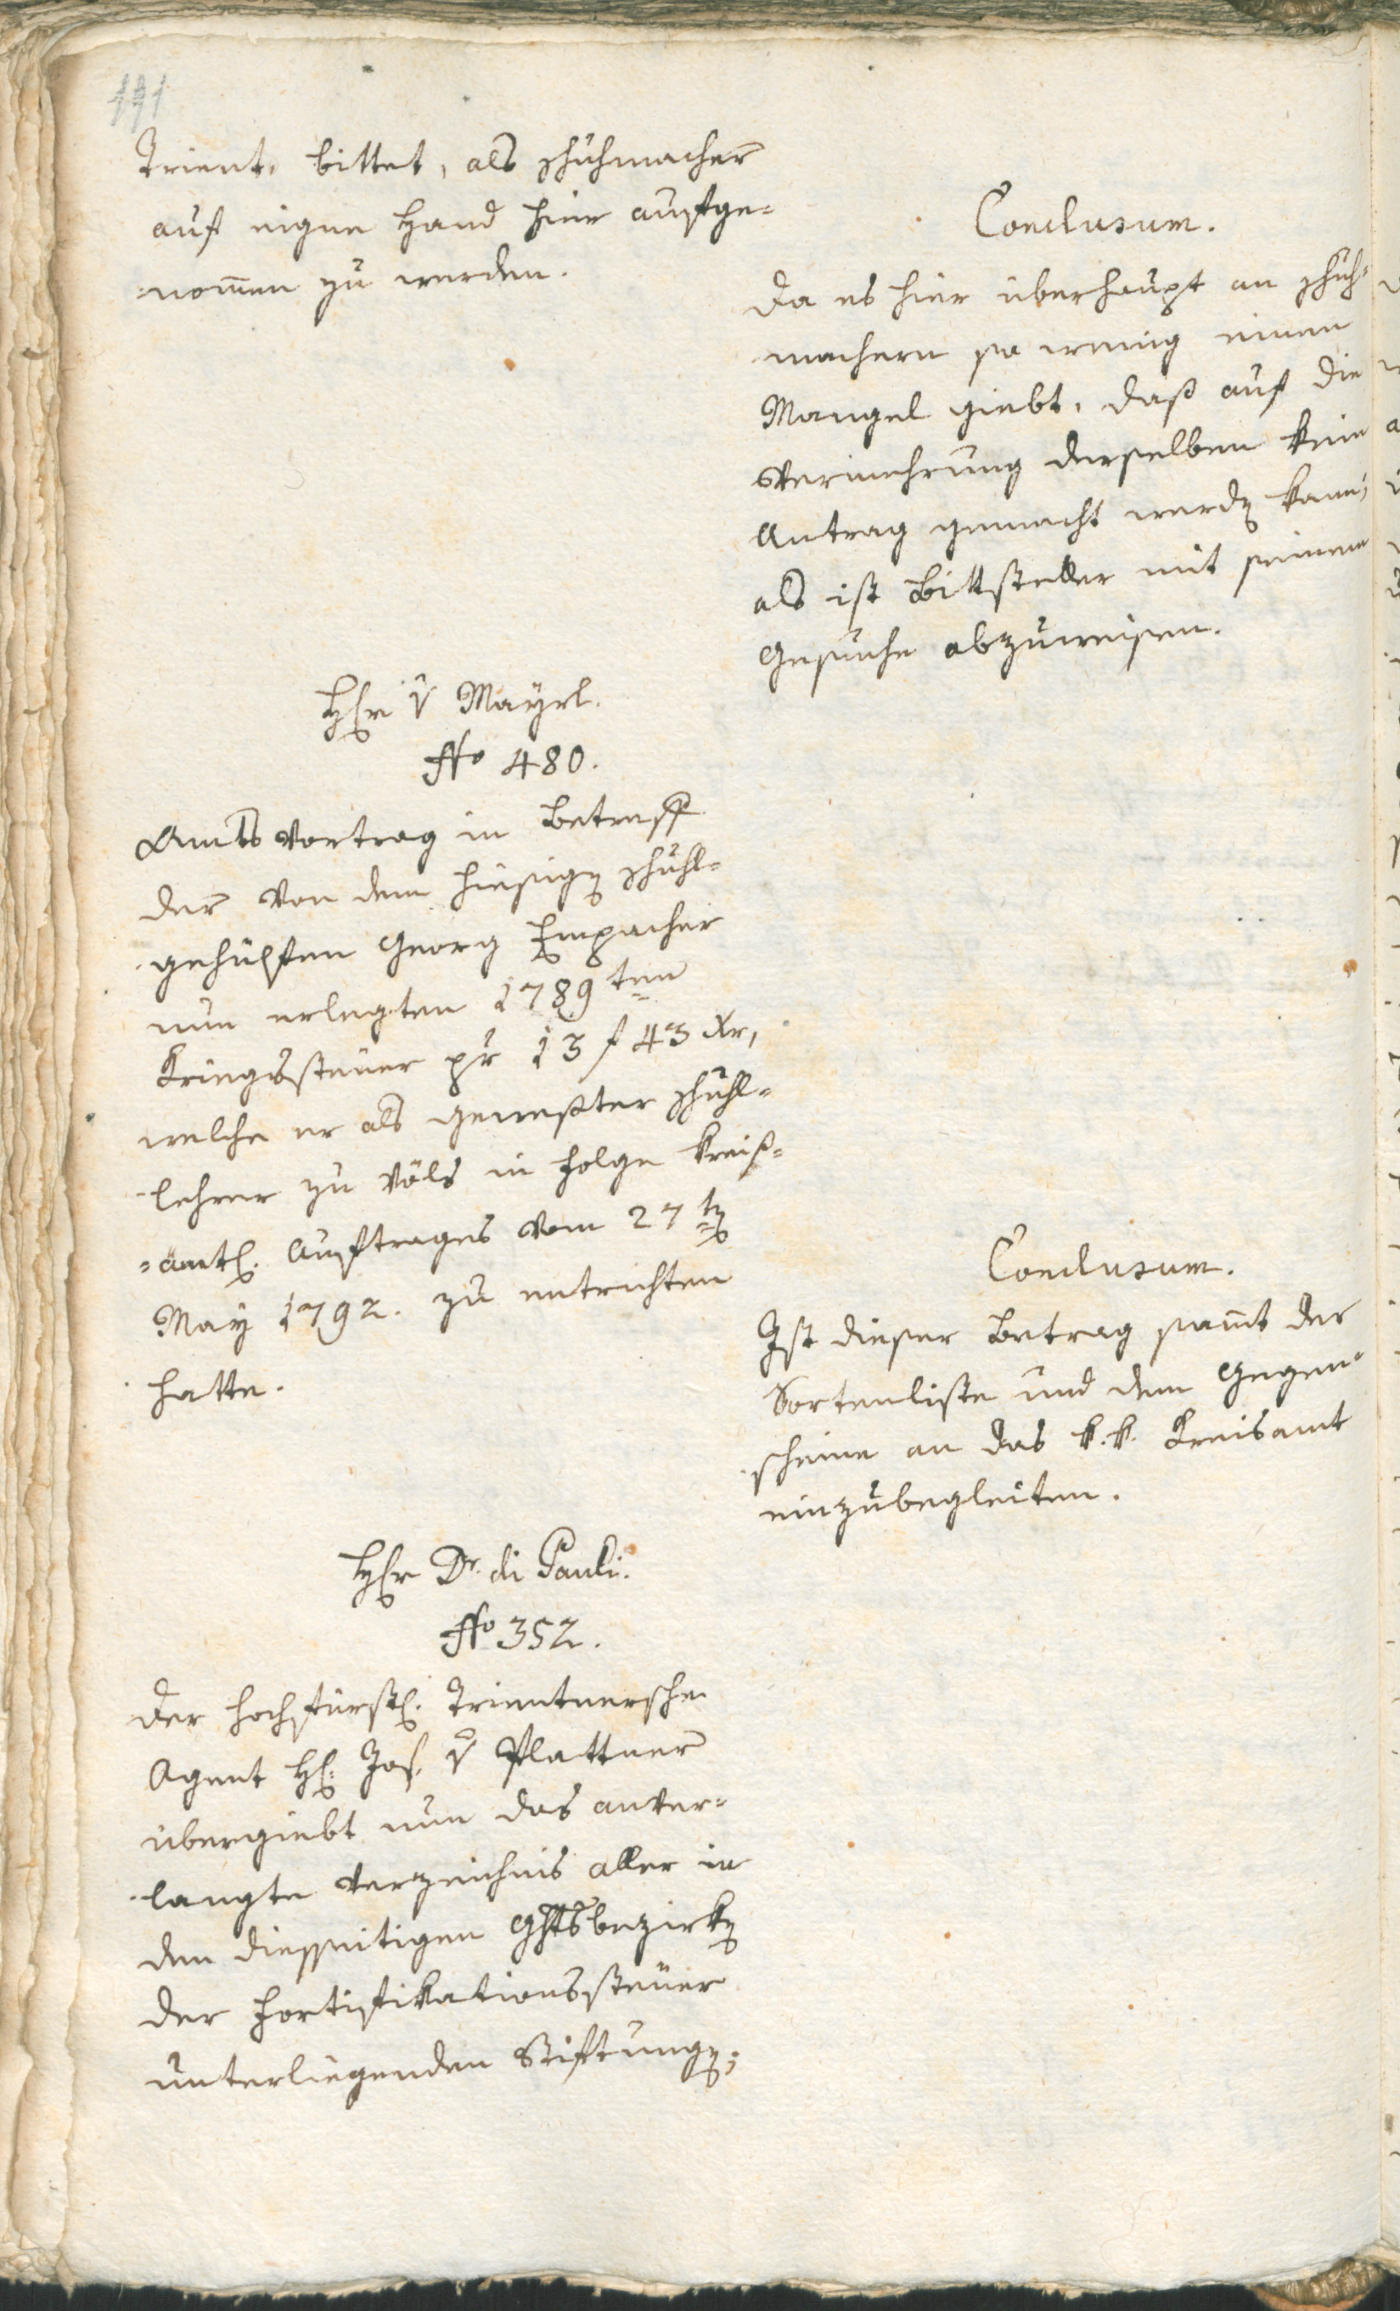 191
Trient, bittet, als Schuhmacher
auf eigne Hand hier aufge-
nom̄en zu werden.
Conclusum.
Da es hier überhaupt an Schuh-
machern so wenig einen
Mangel giebt, daß auf die
Vermehrung derselben kein
Antrag gemacht werden kann,
als ist Bittsteller mit seinem
Gesuche abzuweisen.
Herr v Mayrl.
No 480.
Amts Vortrag in Betreff
der von dem hiesigen Schuhl-
gehülfen Georg Empacher
nun erlegten 1789ten
Kriegssteuer pr 13 f 43 xr,
welche er als geweßter Schuhl-
lehrer zu Völs in Folge kreiß-
amtl. Auftrages vom 27ten
May 1792. zu entrichten
hatte.
Conclusum.
Ist dieser Betrag sam̄t der
Sortenliste und dem Gegen-
scheine an das k. k. Kreisamt
einzubegleiten.
Herr Dr. di Pauli.
No 352.
Der hochfürstl. Trientnersche
Agent H. Jos. v Plattner
übergiebt nun das anver-
langte Verzeichnis aller in
den diesseitigen Ghtsbezirken
der Fortifikationssteuer
unterliegenden Stiftungen;